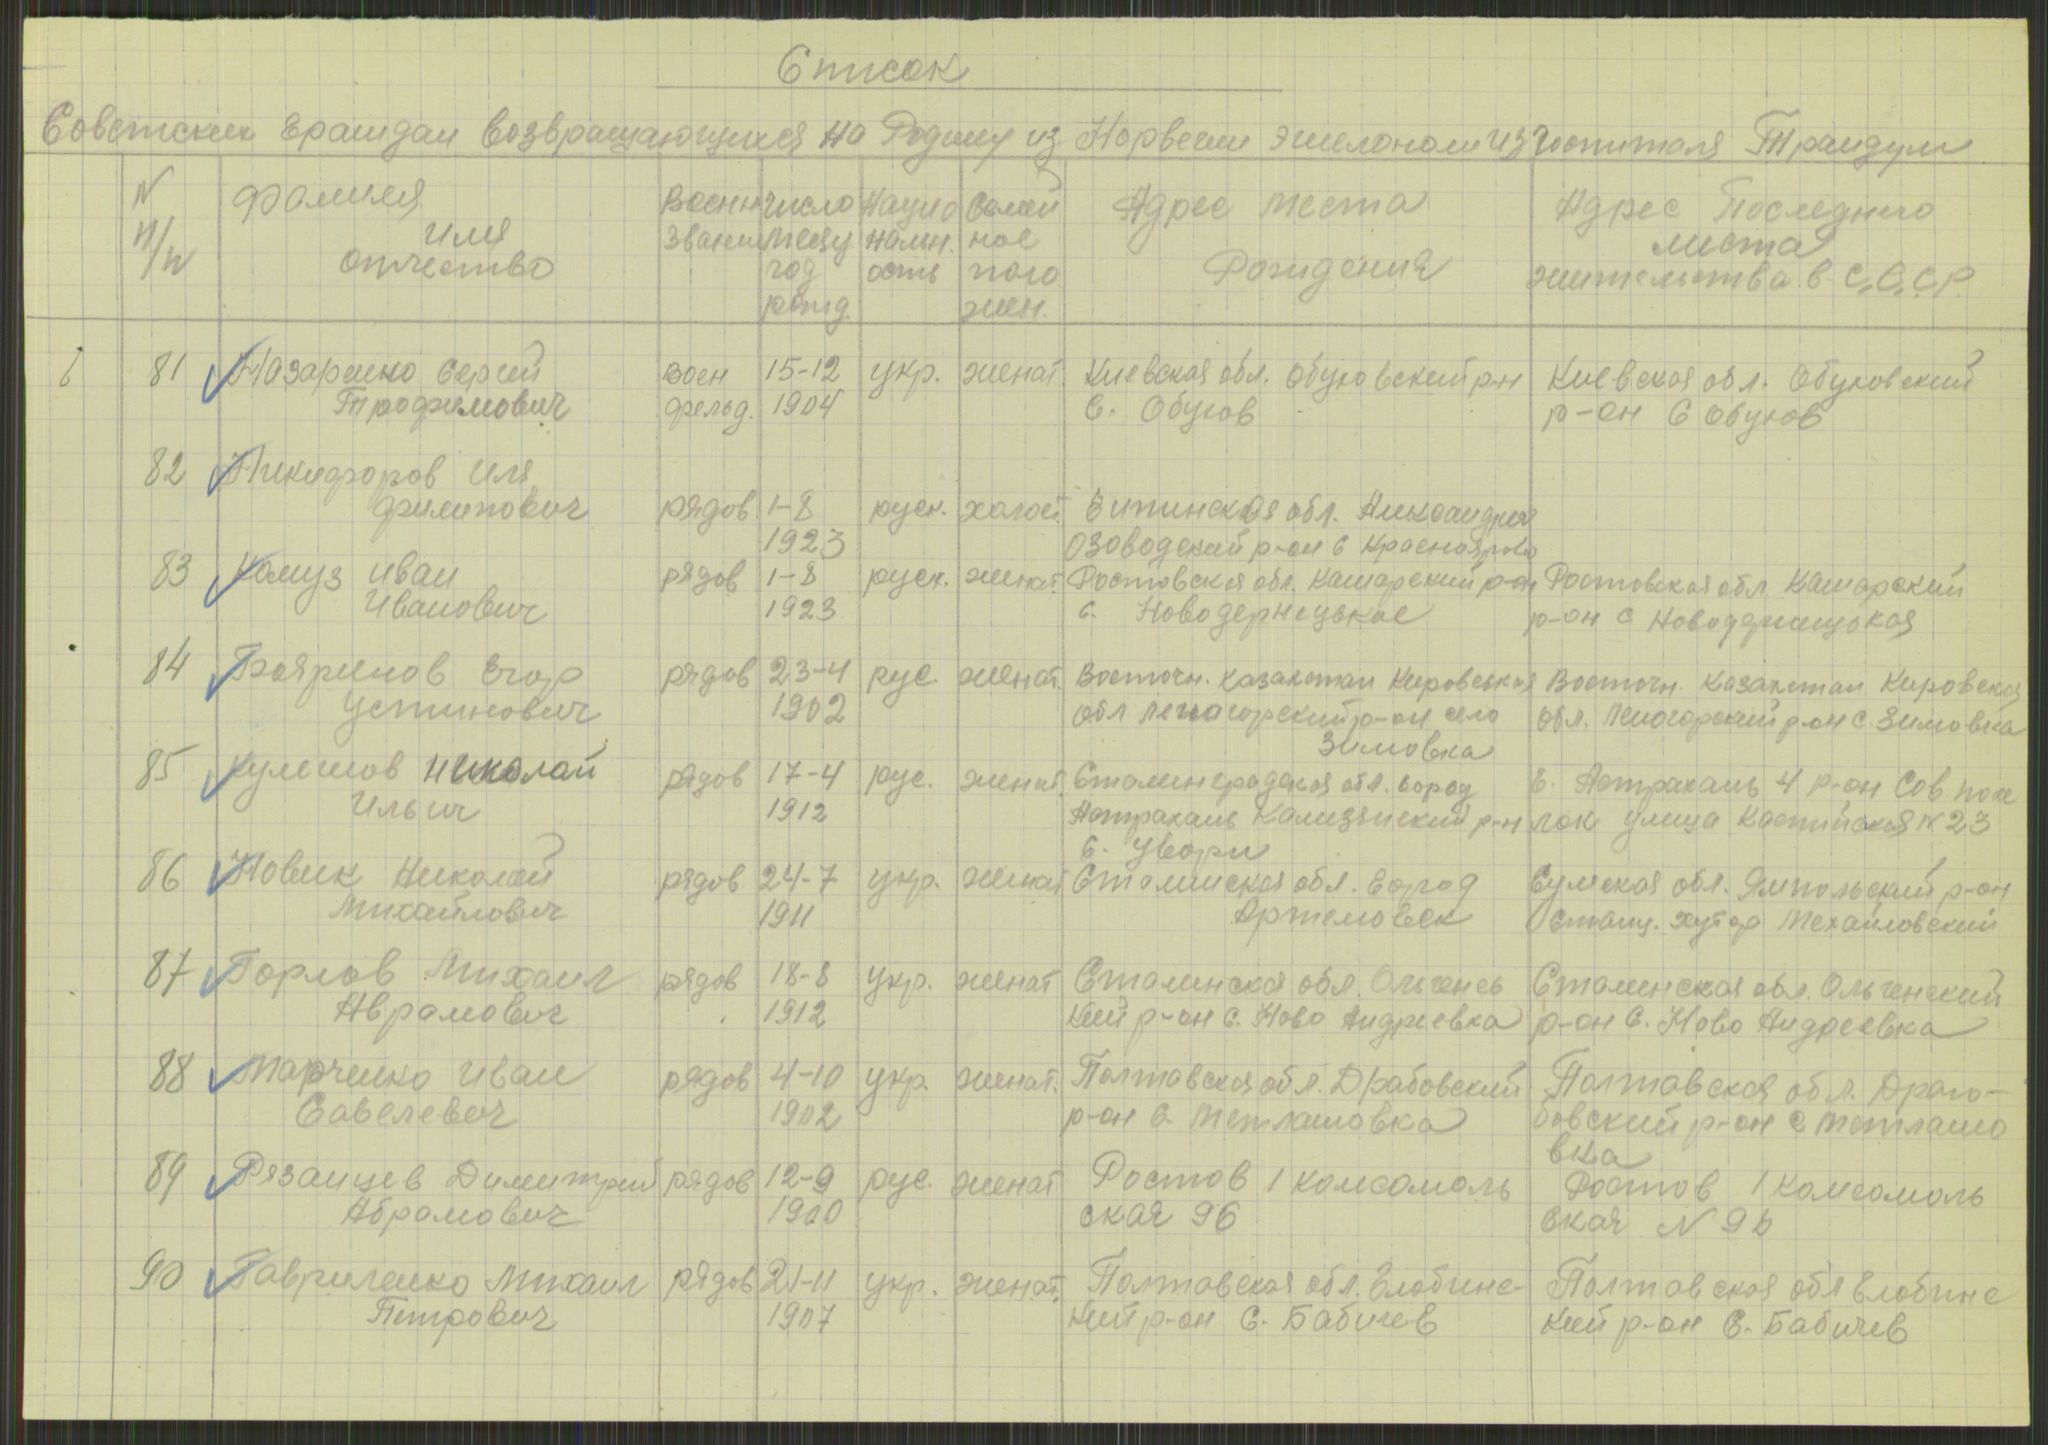 Список
Советских Граждан возвращающихся на Родину из Норвегии эшелоном из госпиталя Трандум
N п/п
Фамилия Имя Отчество
Военн звание
Число месяц год рожд.
Нацио нальн. ость
Семей ное поло жен.
Адрес места Рождения
Адрес Последнего места жительства в С.С.С.Р
81 Назаренко Сергей воен 15-12 укр. женат. Киевская обл. Обуховский р-н Киевская обл. Обуховский
Трофимович фельд. 1904 с. Обухов р-он с Обухов
82 Никифоров Иля
Филипович рядов 1-8 руск. холост. Читинская обл. Александров
1923 озоводский р-он с Красноярово
83 Камуз Иван рядов 1-8 руск. женат. Ростовская обл. Кашарский р-он Ростовская обл Кашарский
Иванович 1923 с. Р-он с
84 Бояринов Егор рядов 23-4 рус. женат. Восточн. Казахстан Кировская Восточн. Казахстан Кировская
Устинович 1902 обл Леногорский р-он село обл. Леногорский р-он с. Зимовка
Зимовка
85 Кулешов Николай рядов 17-4 рус. женат. Сталинградская обл. город г. Астрахань 4 р-он Сов. посе
Ильич 1912 Астрахань р-н лок улица Каспийская N 23
с. Увори
86 Новик Николай рядов 24-7 укр. женат Сталинская обл. город Сумская обл. Ямпольский р-он
Михайлович 1911 Артемовск станц. хутор Михайловский
87 Горлов Михаил рядов 18-8 укр. женат Сталинская обл. Ольгенс Сталинская обл. Ольгенский
Аврамович 1912 кий р-он с. Ново Андреевка р-он с. Ново Андреевка
88 Марченко Иван рядов 4-10 укр. женат. Полтавская обл. Драбовский Полтавская обл. Драго-
Савелевич 1902 р-он с. Метлашовка бовский р-он с Метлашо
вка
89 Рязанцев Димитрий рядов 12-9 рус. женат Ростов 1 комсомоль Ростов 1 комсомоль
Абрамович 1900 ская 96 ская N 96
90 Гавриленко Михаил рядов 21-11 укр. женат. Полтавская обл. Глобинс- Полтавская обл Глобинс
Петрович 1907 кий р-он с. Бабичев кий р-он с. Бабичев